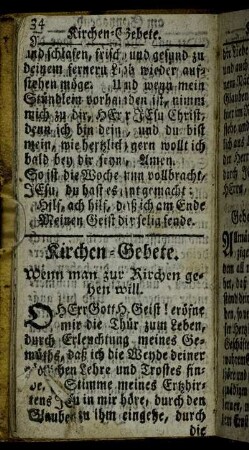 34
Kirchen-Gebete.
und schlafen, frisch und gesund zu
deinem fernern Lob wieder auf-
stehen möge. Und wenn mein
Stündlein vorhanden ist, nimm
mich zu dir, HErr JEsu Christ,
denn ich bin dein, und du bist
mein, wie hertzlich gern wollt ich
bald bey dir seyn, Amen.
So ist die Woche nun vollbracht,
JEsu, du hast es gutgemacht:
Hilf, ach hilf, daß ich am Ende
Meinen Geist dir selig sende.
Kirchen-Gebete.
Wenn man zur Kirchen ge-
hen will.
OHErr Gott H. Geist! eröfne
mir die Thür zum Leben,
durch Erleuchtung meines Ge-
müths, daß ich die Weyde deiner
Lehre und Trostes fin-
Stimme meines Ertzhir-
in mir höre, durch den
zu ihm eingehe, durch
die